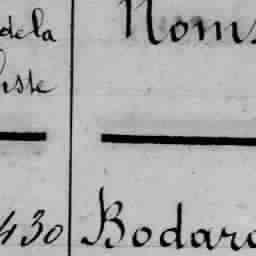 de la Noms
liste
430 Bodard